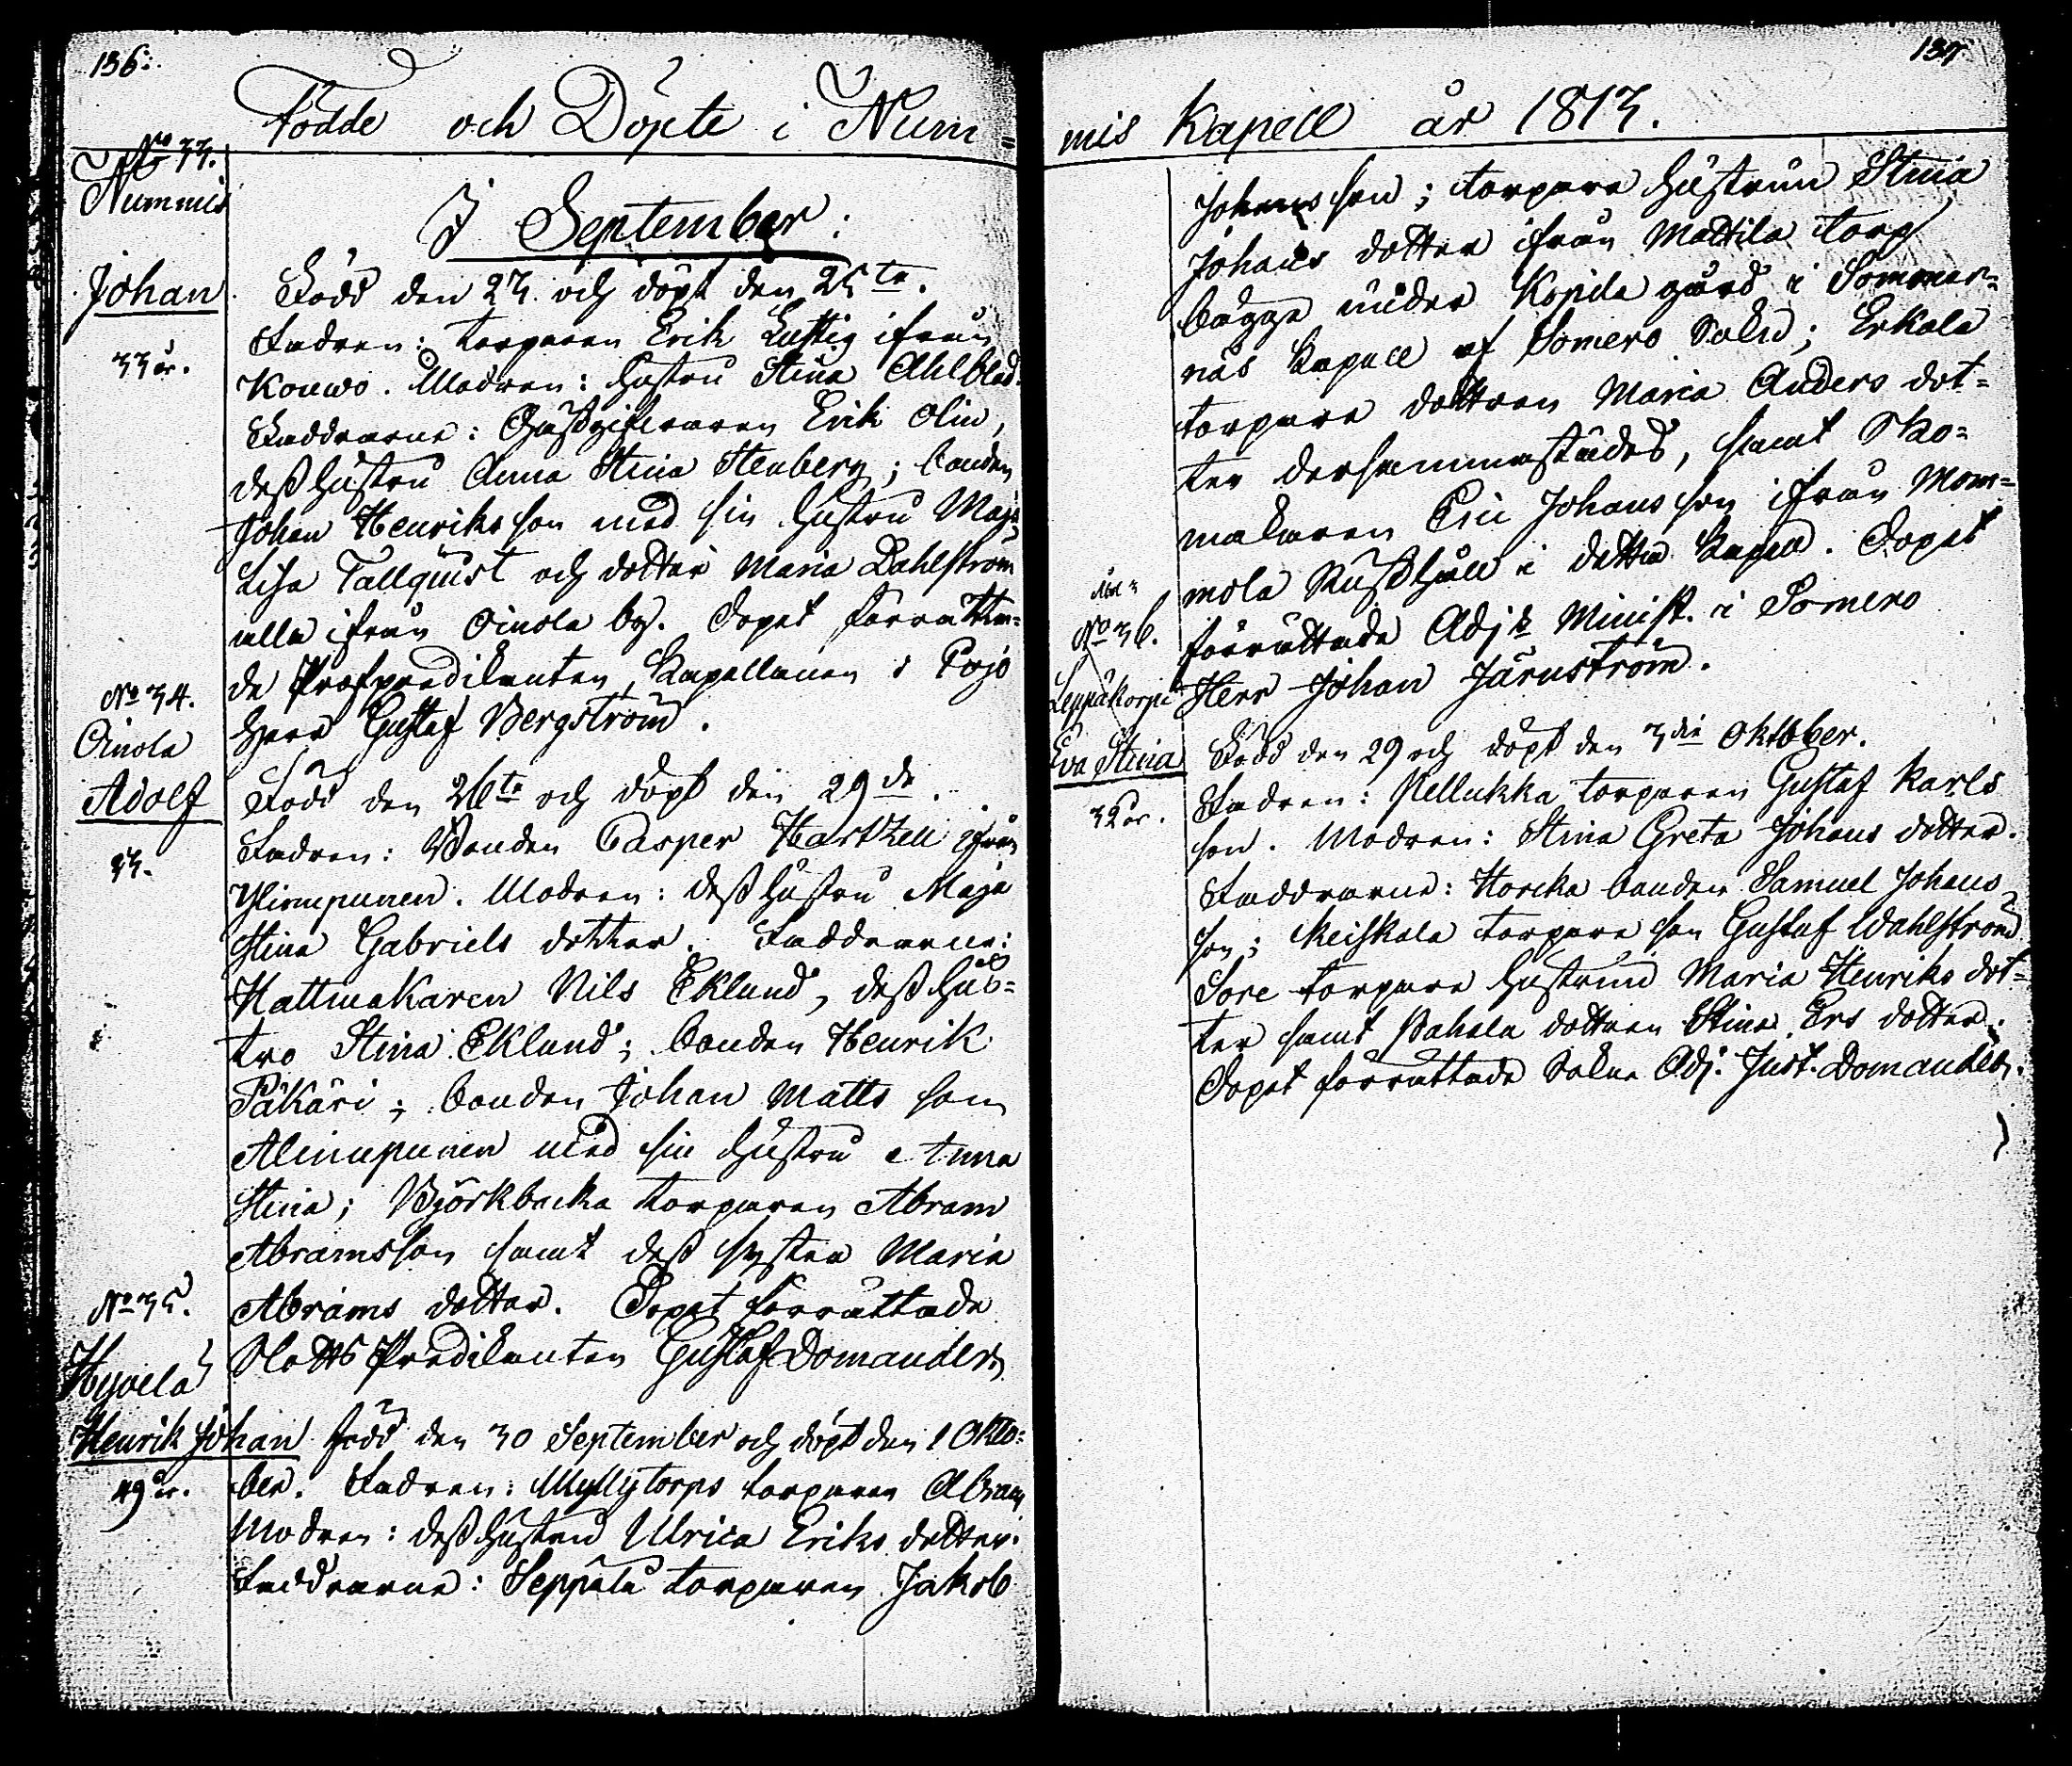 136.
Födde och Döpte i Num=
No 33.
Nummis
I September.
Johan
Född den 23. och döpt den 25te.
Fadren: torparen Erik Lustig ifrån
33 år.
Kouwo. Modren: hustru Stina Ahlblad.
Faddrarne: Gästgifvaren Erik Olin,
dess hustru Anna Stina Stenberg; bonden
Johan Henriks son med sin hustru Maja
Lisa Tallquist och dotter Maria Dahlström
alla ifrån Oinola by. Dopet förrättа-
de Predikanten, Kapellanen i Pojo
No 34.
Herr Gustaf Bergström.
Oinola
Adolf
Född den 26te och döpt den 29de.
Fadren: Bonden Casper Hartzell ifrån
33.
Ylimpunen. Modren: dess hustru Maja
Stina Gabriels dotter. Faddrarne:
Hattmakaren Nils Eklund, dess hus=
tro Stina Eklund; bonden Henrik
Päkäri; bonden Johan Matts son
Alinupunen med sin hustru Anna
Stina; Björkbacka torparen Abram
Abramsson samt dess syster Maria
No 35.
Abrams dotter. Dopet förrättade
Slotts Predikanten Gustaf Domander
Hyvelä
Henrik Johan född den 30 September och döpt den 1 Okto=
49 år.
ber. Fadren: Myllytorps torparen Abram
Modren: dess hustru Ulrica Eriks dotter.
Faddrarne: Seppälä torparen Jakob
137.
mis Kapell år 1813.
Johans son; torpare hustrun Stina
Johans dotter ifrån Mattila torp
bägge under Kopila gård i Sommar=
näs Kapell af Somero Sokn; Erkola
torpare dottren Maria Anders dot=
ter dersammastädes, samt Sko=
makaren Eric Johans son ifrån Mom=
mola Rusthåll i detta Kapell. Dopet
No 36.
förrättade Adj. Minist. i Somero
Leppäkorpi
Herr Johan Järnström.
Eva Stina
Född den 29 och döpt den 3die Oktober.
Fadren: Pellukka torparen Gustaf Karls
32 år.
son. Modren: Stina Greta Johans dotter.
Faddrarne: Horcka bonden Samuel Johans
son; Keiskala torpare son Gustaf Wahlström
Sore torpare hustrun Maria Henriks dot=
ter samt Pahala dottren Stina Ers dotter.
Dopet förrättade Sokne Adj. Just. Domander.